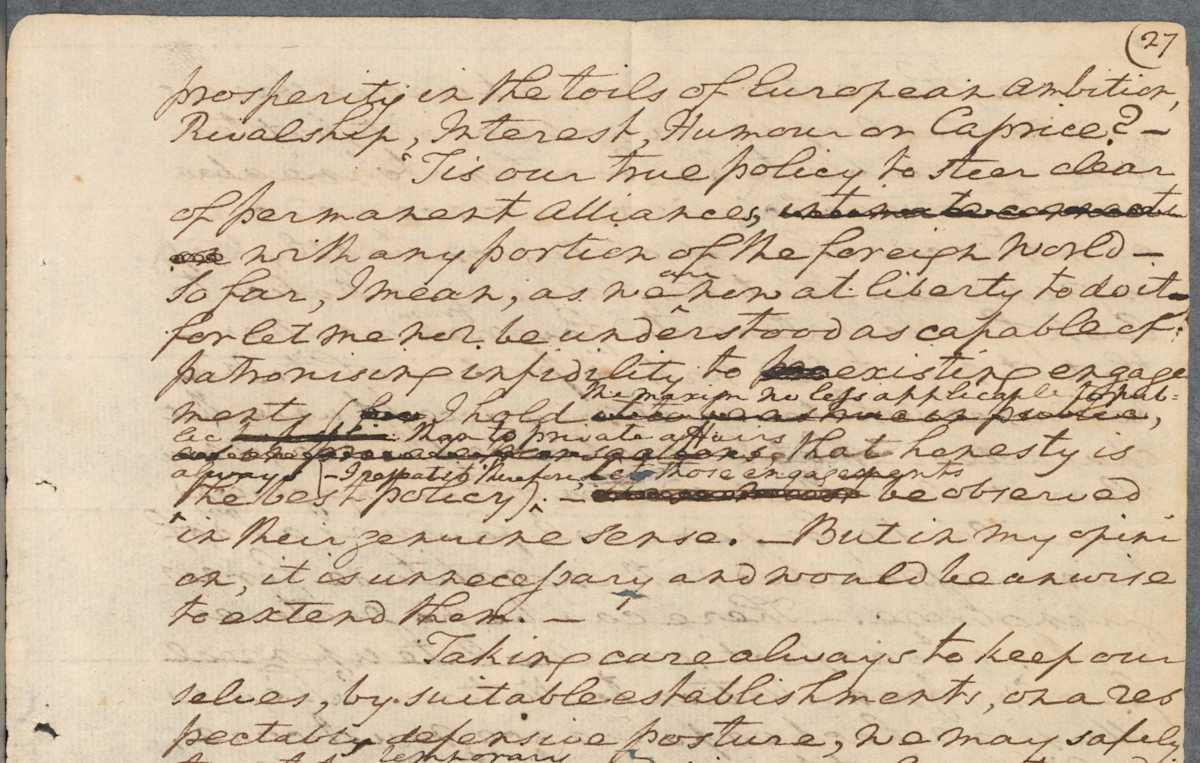 (27
prosperity in the toils of European ambition,
Rivalship, Interest, Humour or Caprice?—
'Tis our true policy to steer clear
of permanent Alliances, intimate connect
with any portion of the foreign World—
So far, I mean, as we are now at liberty to do it—
for let me not be understood as capable of
patronising infidility to existing engage
ments (I hold the maxim no less applicable to pub-
lic than to private affairs
that honesty is
always
the best policy). — I repeat it therefore Let those engagements be observed
in their genuine sense. — But in my opini
on, it is unnecessary and would be unwise
to extend them. —
Taking care always to keep our
selves, by suitable establishments, on a res
pectably defensive posture, we may safely
temporary